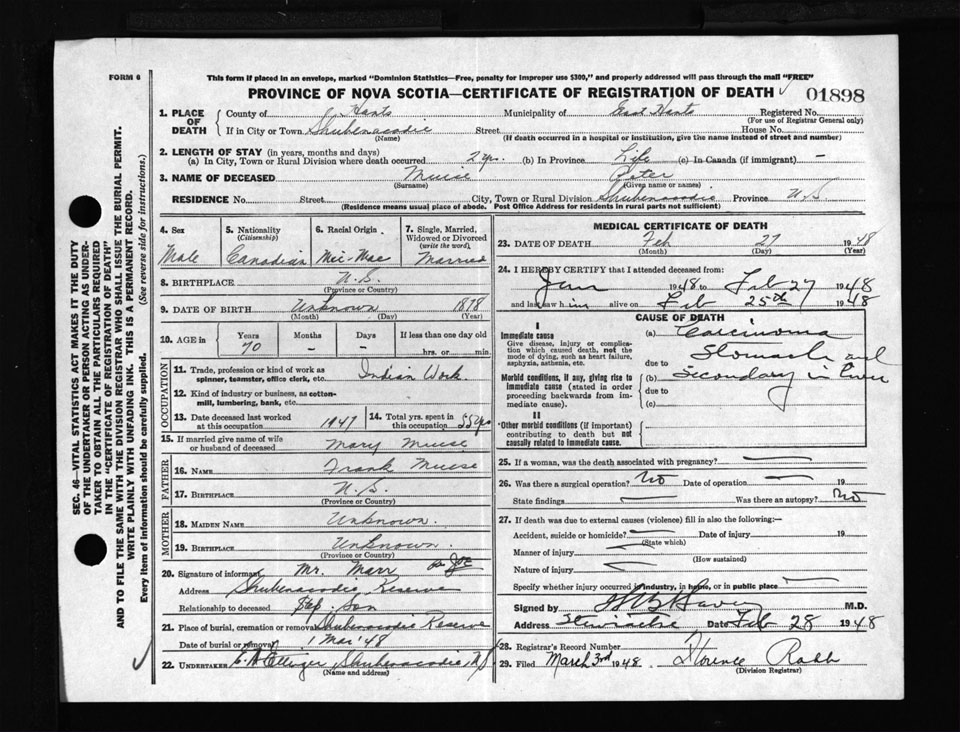 FORM 6
This form if placed in an envelope, marked "Dominion Statistics—Free, penalty for improper use $300," and properly addressed will pass through the mail "FREE"
PROVINCE OF NOVA SCOTIA—CERTIFICATE OF REGISTRATION OF DEATH 01898
1. PLACE OF DEATH
County of Hants Municipality of East Hants Registered No.
(For use of Registrar General only)
If in City or Town Shubenacadie Street House No.
(Name) (If death occurred in a hospital or institution, give the name instead of street and number)
2. LENGTH OF STAY (in years, months and days)
(a) In City, Town or Rural Division where death occurred 2 yrs. (b) In Province Life (c) In Canada (if immigrant) —
3. NAME OF DECEASED Muise Peter
(Surname) (Given name or names)
RESIDENCE No. Street City, Town or Rural Division Shubenacadie Province N.S
(Residence means usual place of abode. Post Office Address for residents in rural parts not sufficient)
4. Sex 5. Nationality (Citizenship) 6. Racial Origin 7. Single, Married, Widowed or Divorced (write the word)
Male Canadian Mic-Mac Married
8. BIRTHPLACE N.S.
(Province or Country)
9. DATE OF BIRTH Unknown 1878
(Month) (Day) (Year)
10. AGE in Years Months Days If less than one day old
70 – – hrs. or min.
OCCUPATION
11. Trade, profession or kind of work as spinner, teamster, office clerk, etc. Indian Work.
12. Kind of industry or business, as cotton-mill, lumbering, bank, etc.
13. Date deceased last worked at this occupation 1947 14. Total yrs. spent in this occupation 55 yrs
15. If married give name of wife or husband of deceased Mary Muise
FATHER
16. NAME Frank Muise
17. BIRTHPLACE N.S.
(Province or Country)
MOTHER
18. MAIDEN NAME Unknown.
19. BIRTHPLACE Unknown.
(Province or Country)
20. Signature of informant Mr. Marr Joe
Address Shubenacadie Reserve
Relationship to deceased Step Son
21. Place of burial, cremation or removal Shubenacadie Reserve
Date of burial or removal 1 Mar '48
22. UNDERTAKER Shubenacadie, N.S
(Name and address)
MEDICAL CERTIFICATE OF DEATH
23. DATE OF DEATH Feb 27 1948
(Month) (Day) (Year)
24. I HEREBY CERTIFY that I attended deceased from:
Jan 1948 to Feb 27 1948
and last saw him alive on Feb 25th 1948
CAUSE OF DEATH
I
Immediate cause
Give disease, injury or complication which caused death, not the mode of dying, such as heart failure, asphyxia, asthenia, etc.
(a) Carcinoma
Stomach and
due to
Morbid conditions, if any, giving rise to immediate cause (stated in order proceeding backwards from immediate cause).
(b) Secondary in Liver
due to
(c)
II
*Other morbid conditions (if important) contributing to death but not causally related to immediate cause.
25. If a woman, was the death associated with pregnancy?
26. Was there a surgical operation? No Date of operation — 19
State findings — Was there an autopsy? No
27. If death was due to external causes (violence) fill in also the following:—
Accident, suicide or homicide? Date of injury 19
(State which)
Manner of injury
(How sustained)
Nature of injury
Specify whether injury occurred in industry, in home, or in public place
Signed by M.D.
Address Stewiacke Date Feb 28 1948
28. Registrar's Record Number
29. Filed March 3rd 1948. Florence Robb
(Division Registrar)
SEC. 46—VITAL STATISTICS ACT MAKES IT THE DUTY
OF THE UNDERTAKER OR PERSON ACTING AS UNDERTAKER TO OBTAIN ALL THE PARTICULARS REQUIRED
IN THE "CERTIFICATE OF REGISTRATION OF DEATH"
AND TO FILE THE SAME WITH THE DIVISION REGISTRAR WHO SHALL ISSUE THE BURIAL PERMIT.
WRITE PLAINLY WITH UNFADING INK. THIS IS A PERMANENT RECORD.
Every item of information should be carefully supplied. (See reverse side for instructions.)